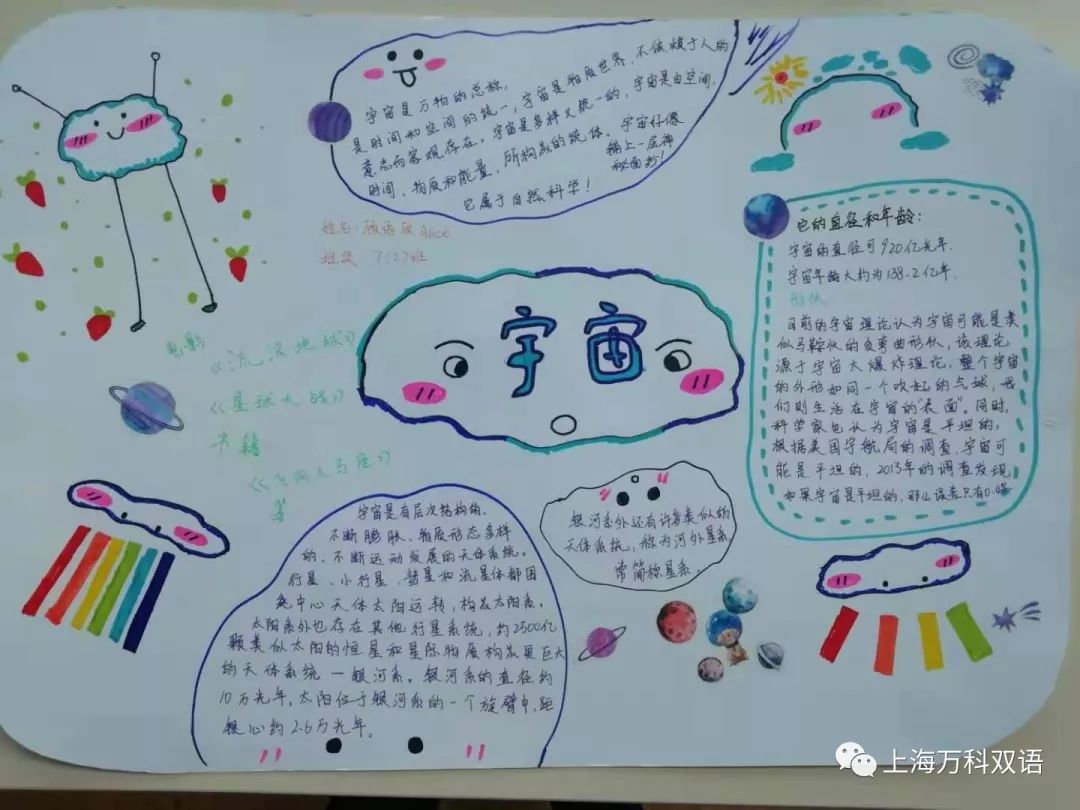 宇宙是万物的总称,
是时间和空间的统一,宇宙是物质世界,不依赖于人的
意志而客观存在。宇宙是多样又统一的,宇宙是由空间,
时间、物质和能量,所构成的统体。宇宙好像
隔上一层神
秘面纱!
它属于自然科学!
姓名:顾 Alice
班级 7(2)班
宇宙
它的直径和年龄:
宇宙的直径可920亿光年.
宇宙年龄大约为138.2亿年.
形状
目前的宇宙理论认为宇宙可能是类
似马鞍状的负弯曲形状,该理论
源于宇宙大爆炸理论,整个宇宙
的外形如同一个吹起的气球,我
们则生活在宇宙的"表面"。同时,
科学家也认为宇宙是平坦的,
根据美国宇航局的调查,宇宙可
能是平坦的,2013年的调查发现
如果宇宙是平坦的,那么误差只有0.4
电影
《流浪地球》
《星球大战》
书籍
《飞向人马座》
等
宇宙是有层次结构的、
不断膨胀、物质形态多样
的、不断运动发展的天体系统。
行星、小行星、彗星和流星体都围
绕中心天体太阳运转,构成太阳系。
太阳系外也存在其他行星系统,约2500亿
颗类似太阳的恒星和星际物质构成更巨大
的天体系统—银河系。银河系的直径约
10万光年,太阳位于银河系的一个旋臂中,距
银心约2.6万光年。
银河系外还有许多类似的
天体系统,称为河外星系,
常简称星系.
上海万科双语